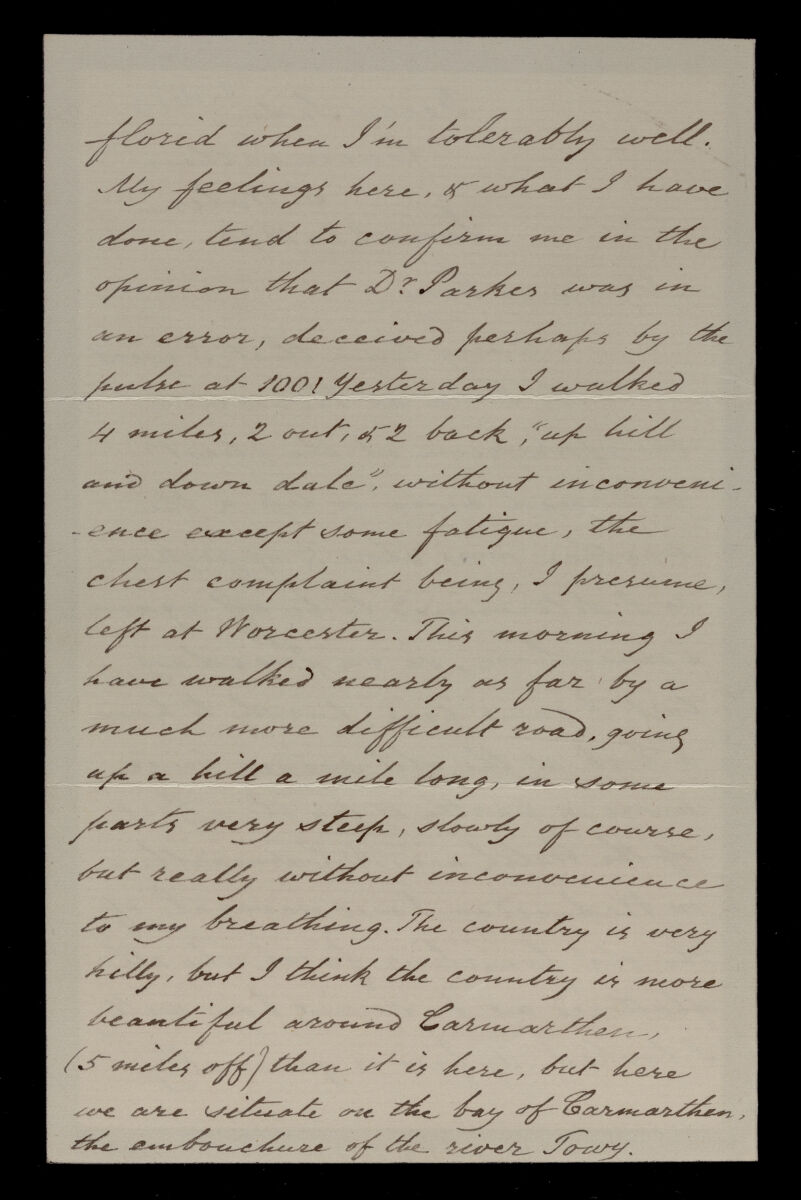 florid when I'm tolerably well.
My feelings here, & what I have
done, tend to confirm me in the
opinion that Dr. Parker was in
an error, deceived perhaps by the
pulse at 100! Yesterday I walked
4 miles, 2 out, & 2 back, "up hill
and down dale", without inconveni-
-ence except some fatigue, the
chest complaint being, I presume,
left at Worcester. This morning I
have walked nearly as far by a
much more difficult road, going
up a hill a mile long, in some
parts very steep, slowly of course,
but really without inconvenience
to my breathing. The country is very
hilly, but I think the country is more
beautiful around Carmarthen,
(5 miles off) than it is here, but here
we are situate on the bay of Carmarthen,
the embouchure of the river Towy.